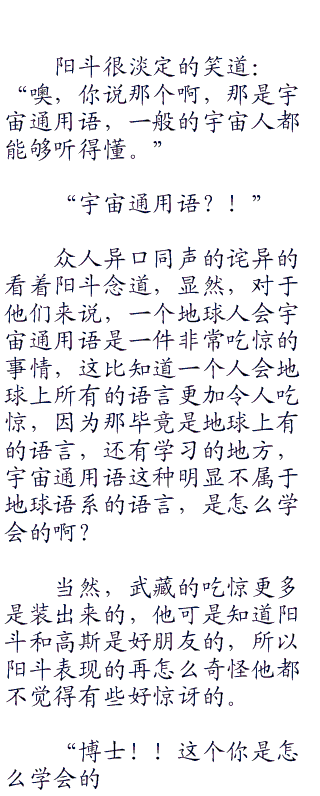 阳斗很淡定的笑道：
“噢，你说那个啊，那是宇
宙通用语，一般的宇宙人都
能够听得懂。”
“宇宙通用语？！”
众人异口同声的诧异的
看着阳斗念道，显然，对于
他们来说，一个地球人会宇
宙通用语是一件非常吃惊的
事情，这比知道一个人会地
球上所有的语言更加令人吃
惊，因为那毕竟是地球上有
的语言，还有学习的地方，
宇宙通用语这种明显不属于
地球语系的语言，是怎么学
会的啊？
当然，武藏的吃惊更多
是装出来的，他可是知道阳
斗和高斯是好朋友的，所以
阳斗表现的再怎么奇怪他都
不觉得有些好惊讶的。
“博士！！这个你是怎
么学会的